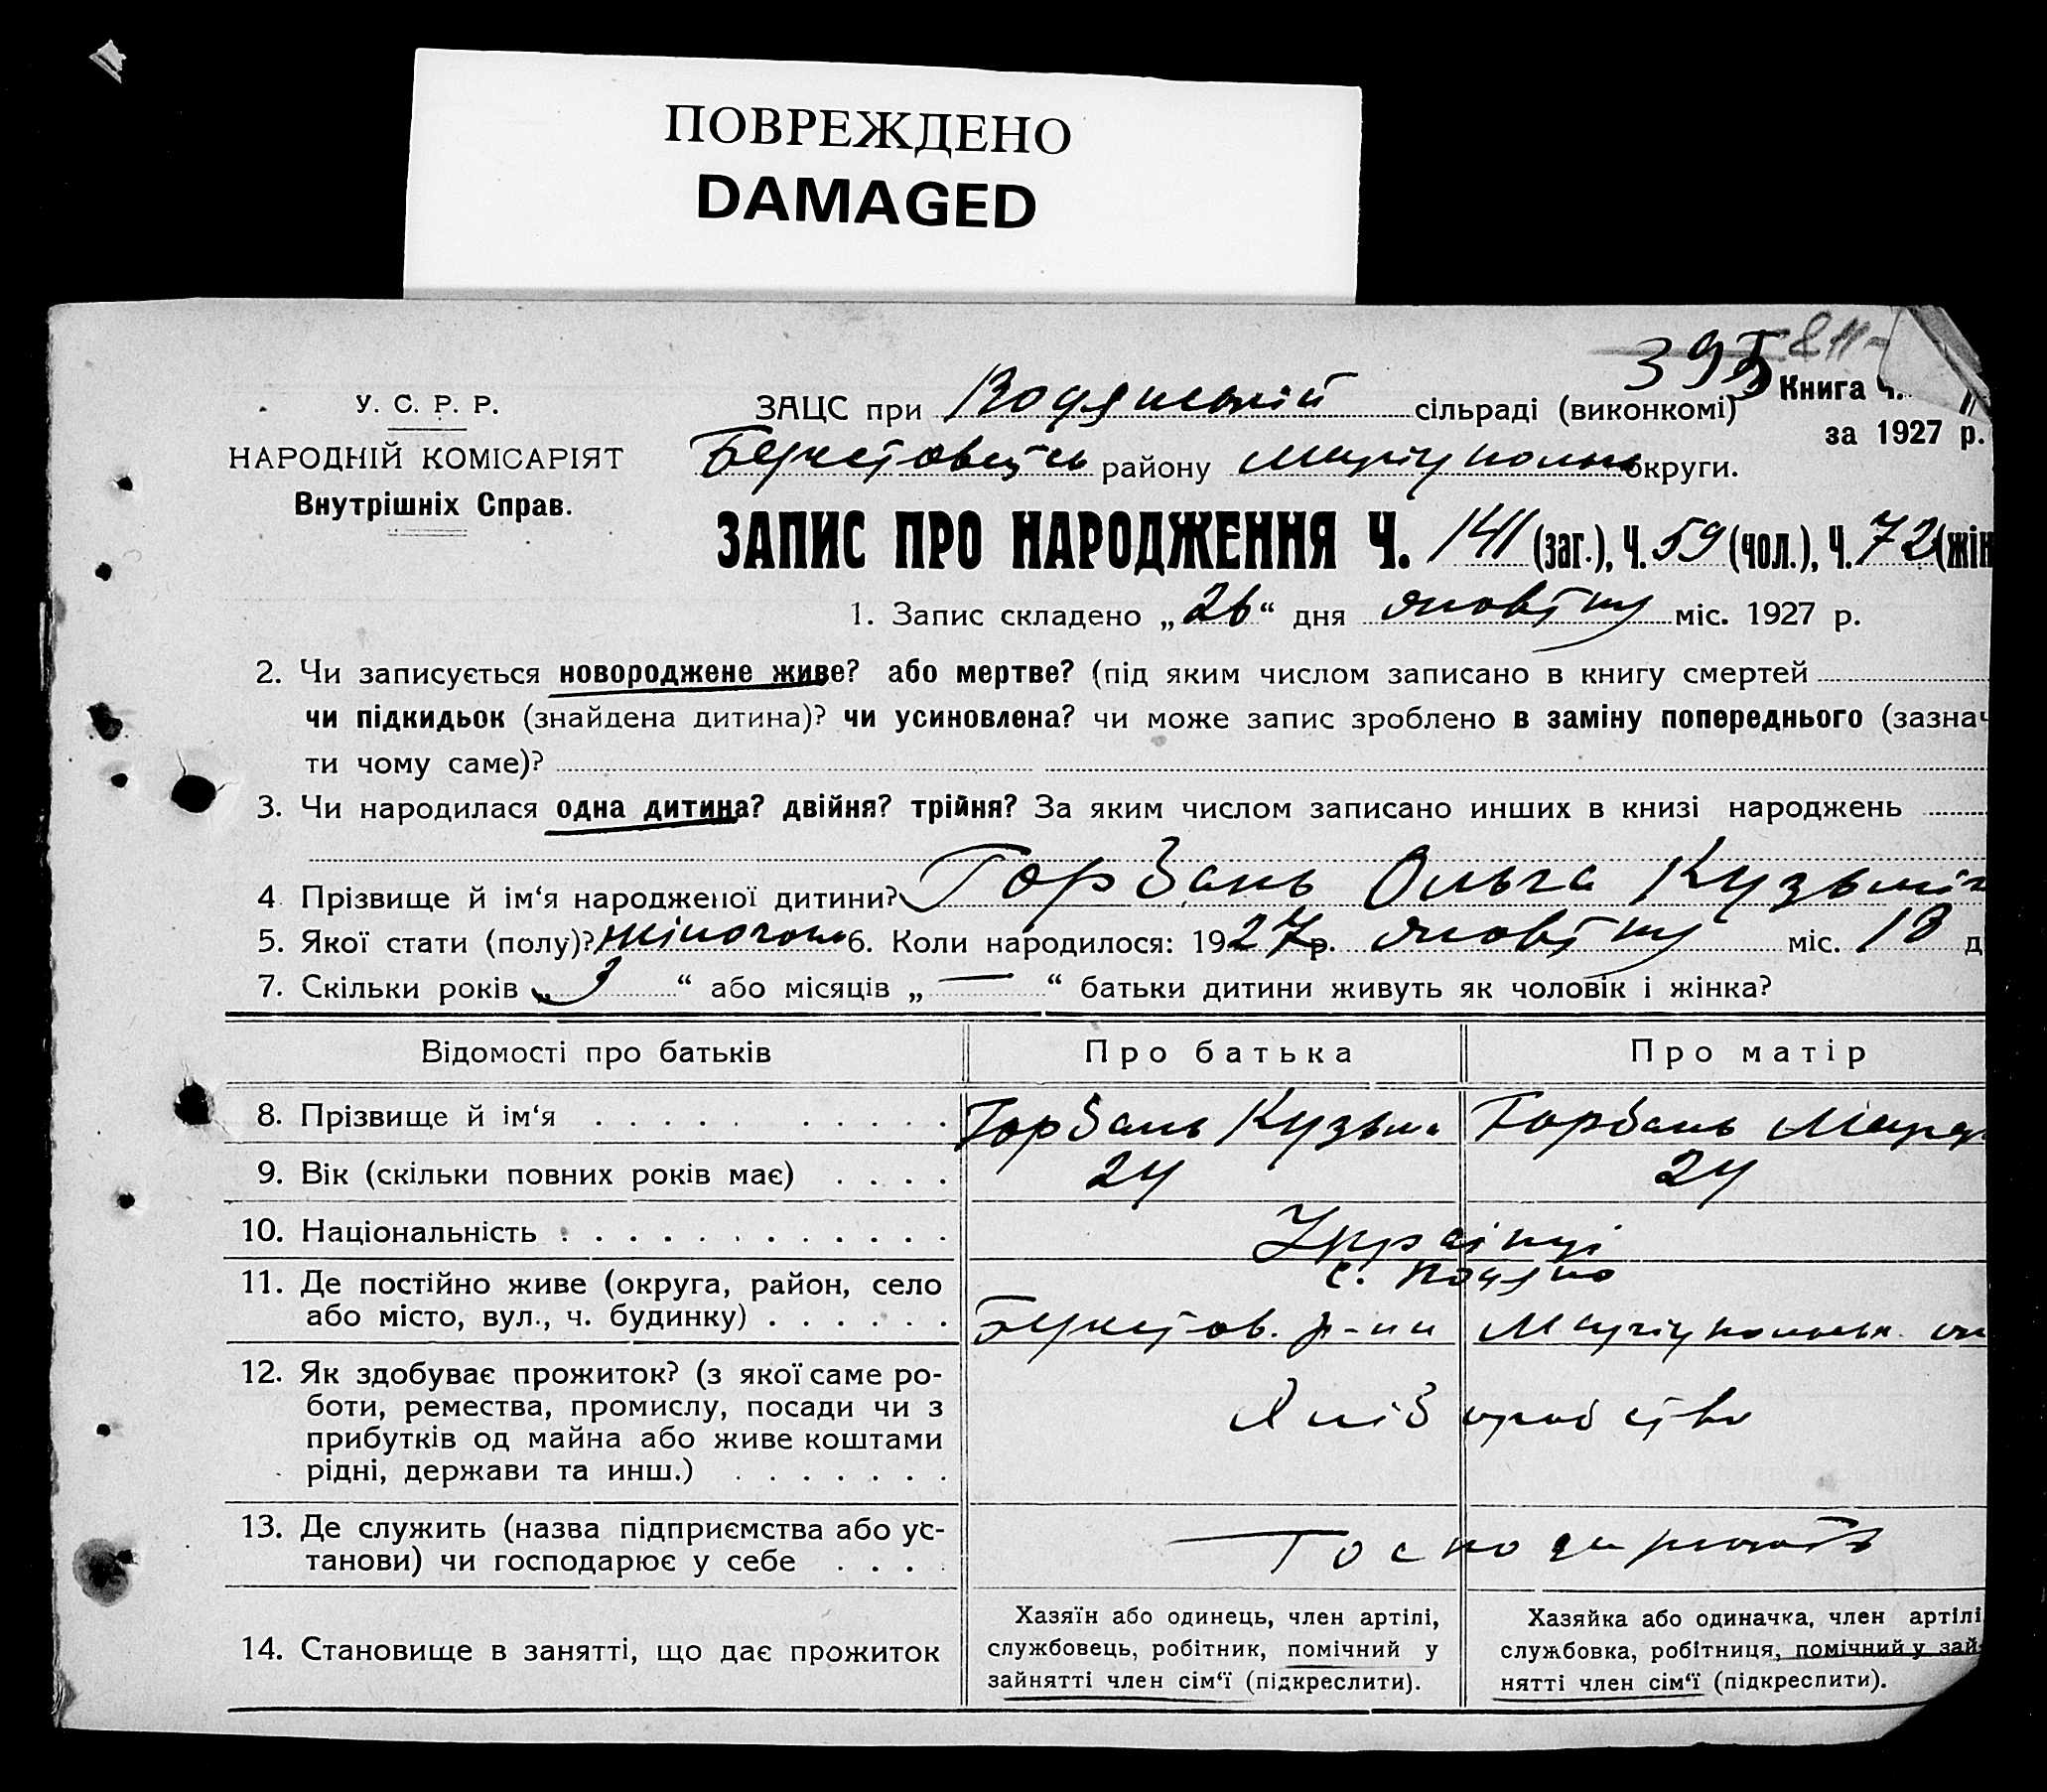 ПОВРЕЖДЕНО
DAMAGED
395 811-
У. С. Р. Р.
НАРОДНІЙ КОМІСАРІЯТ
Внутрішніх Справ.
ЗАЦС при Водянській сільраді (виконкомі) Книга Ч.
за 1927 р.
району округи.
ЗАПИС ПРО НАРОДЖЕННЯ Ч. 141 (заг.), Ч. 59 (чол.), Ч. 72 (жін
1. Запис складено „26“ дня жовтня міс. 1927 р.
2. Чи записується новороджене живе? або мертве? (під яким числом записано в книгу смертей
чи підкидьок (знайдена дитина)? чи усиновлена? чи може запис зроблено в заміну попереднього (зазнач
ти чому саме)?
3. Чи народилася одна дитина? двійня? трійня? За яким числом записано инших в книзі народжень
4 Прізвище й ім‘я народженої дитини? Горбань Ольга Кузьмін
5. Якої стати (полу)? жіночої 6. Коли народилося: 1927 р. жовтня міс. 18 д
7. Скільки років „3“ або місяців „—“ батьки дитини живуть як чоловік і жінка?
Відомості про батьків Про батька Про матір
8. Прізвище й ім‘я . . . . . . . . . . Горбань Кузьма Горбань
9. Вік (скільки повних років має) . . . . 24 24
10. Національність . . . . . . . . . . . . Українці
11. Де постійно живе (округа, район, село с. Водяно
або місто, вул., ч. будинку) . . . . . . Берестов. р-ни Маріупольськ. ок
12. Як здобуває прожиток? (з якої саме ро-
боти, ремества, промислу, посади чи з Хліборобство
прибутків од майна або живе коштами
рідні, держави та инш.) . . . . . . .
13. Де служить (назва підприємства або ус-
танови) чи господарює у себе . . . . Господарюють
Хазяїн або одинець, член артілі, Хазяйка або одиначка, член артілі
14. Становище в занятті, що дає прожиток службовець, робітник, помічний у службовка, робітниця, помічний у зай-
зайнятті член сім‘ї (підкреслити). нятті член сім‘ї (підкреслити).